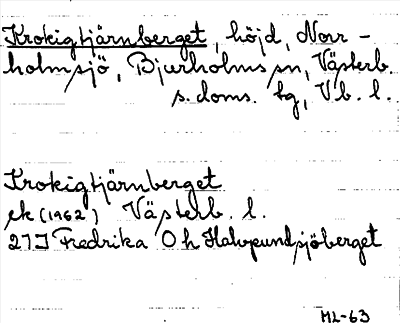 Krokigtjärnberget, höjd, Norr-
holmsjö, Bjurholms sn, Västerb.
s. doms. tg, Vb. l.
Krokigtjärnberget
ek (1962) Västerb. l.
21J Fredrika 0 h Halvpundsjöberget
ML-63